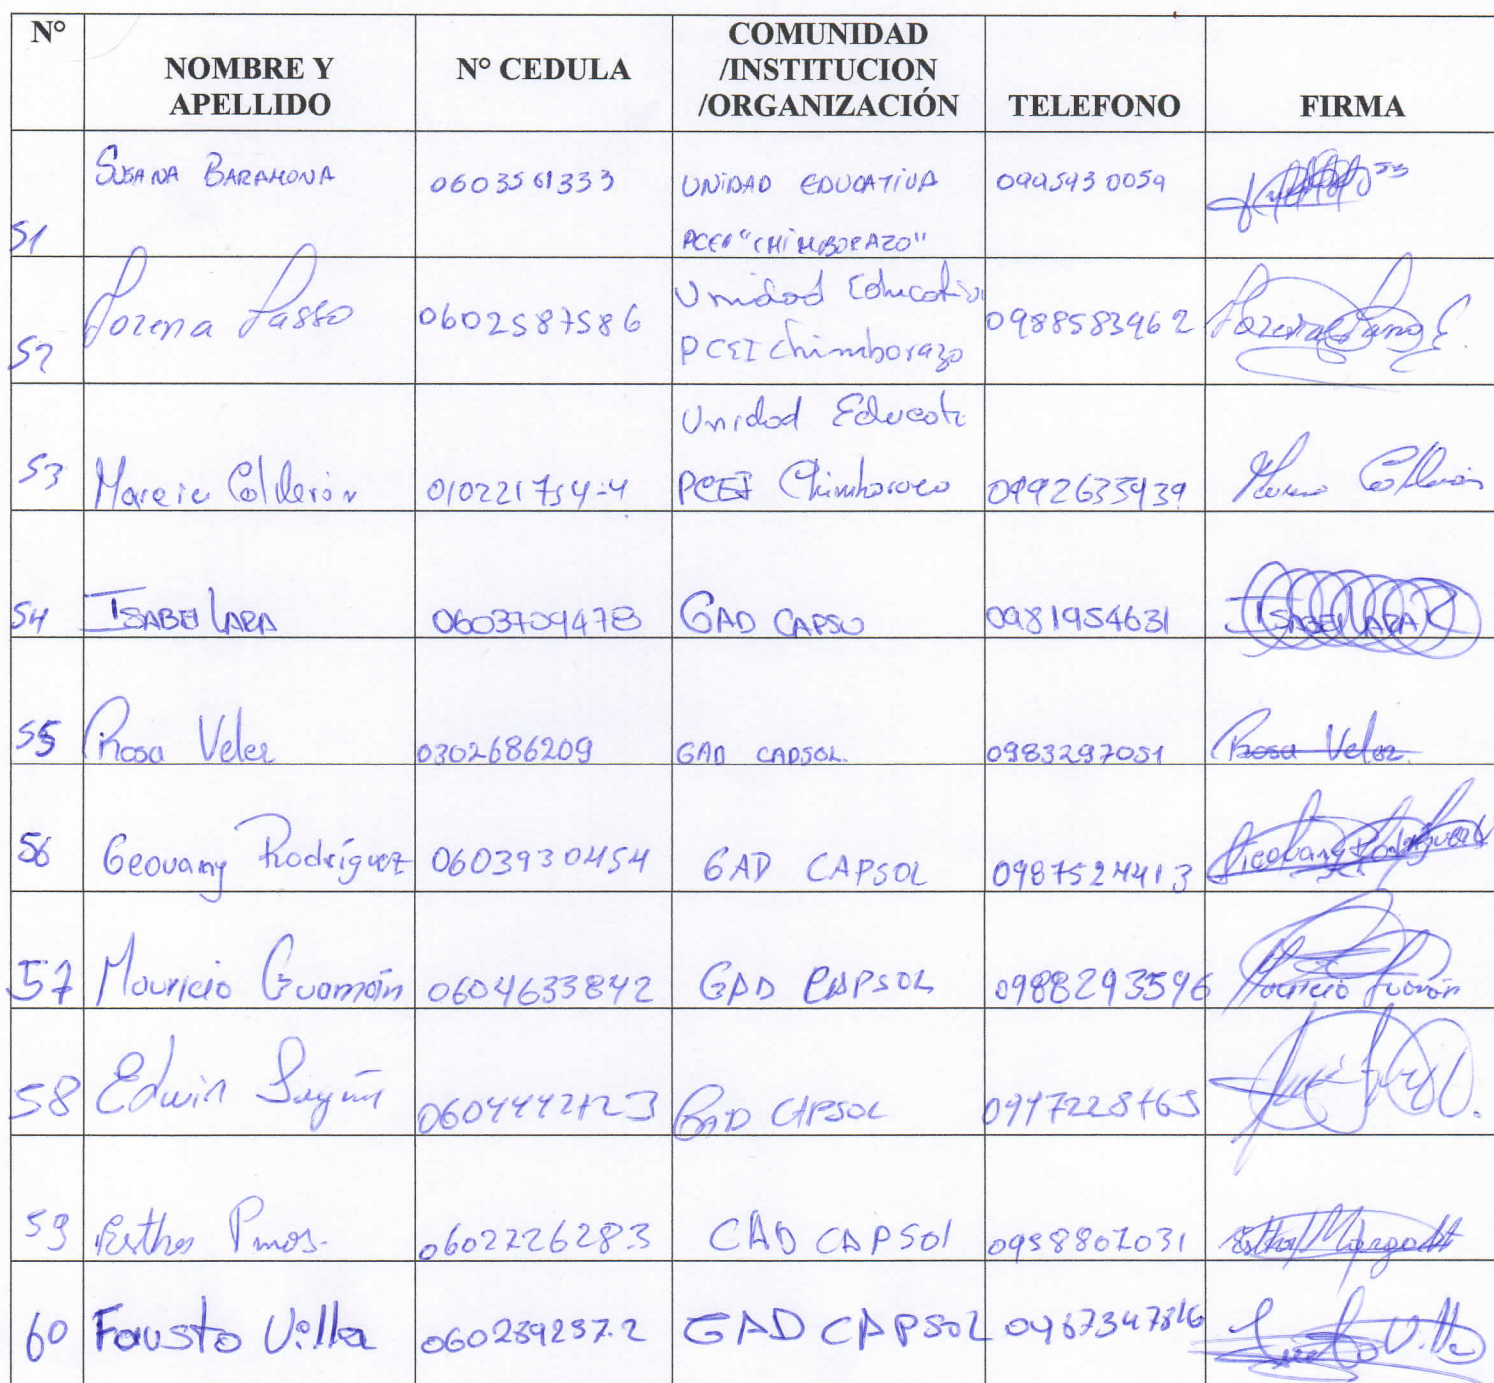 N°
NOMBRE Y
APELLIDO
N° CEDULA
COMUNIDAD
/INSTITUCION
/ORGANIZACIÓN
TELEFONO
FIRMA
51 SUSANA BARAHONA 0603561333 UNIDAD EDUCATIVA 0995930059
"CHIMBORAZO"
52 Lorena Lasso 0602587586 Unidad Educativa 0988583962
PCEI Chimborazo
53 Marcia Calderón 010221754-4 Unidad Educati 0992635939
PCEI Chimborazo
54 ISABEL LARA 0603709478 GAD CAPSO 0981954631 ISABEL LARA
55 Rosa Velez 0302686209 GAD CAPSOL. 0983297051 Rosa Velez
56 Geovany Rodríguez 0603930454 GAD CAPSOL 0987524413 Geovany Rodríguez
57 Mauricio Guamán 0604633842 GAD CAPSOL 0988293596 Mauricio Guamán
58 Edwin GAD CAPSOL
59 Esther 0602226283 CAD CAPSOl 0958807031 Esther
60 Fausto Villa 060289237.2 GAD CAPSOL 0967347816 Villa